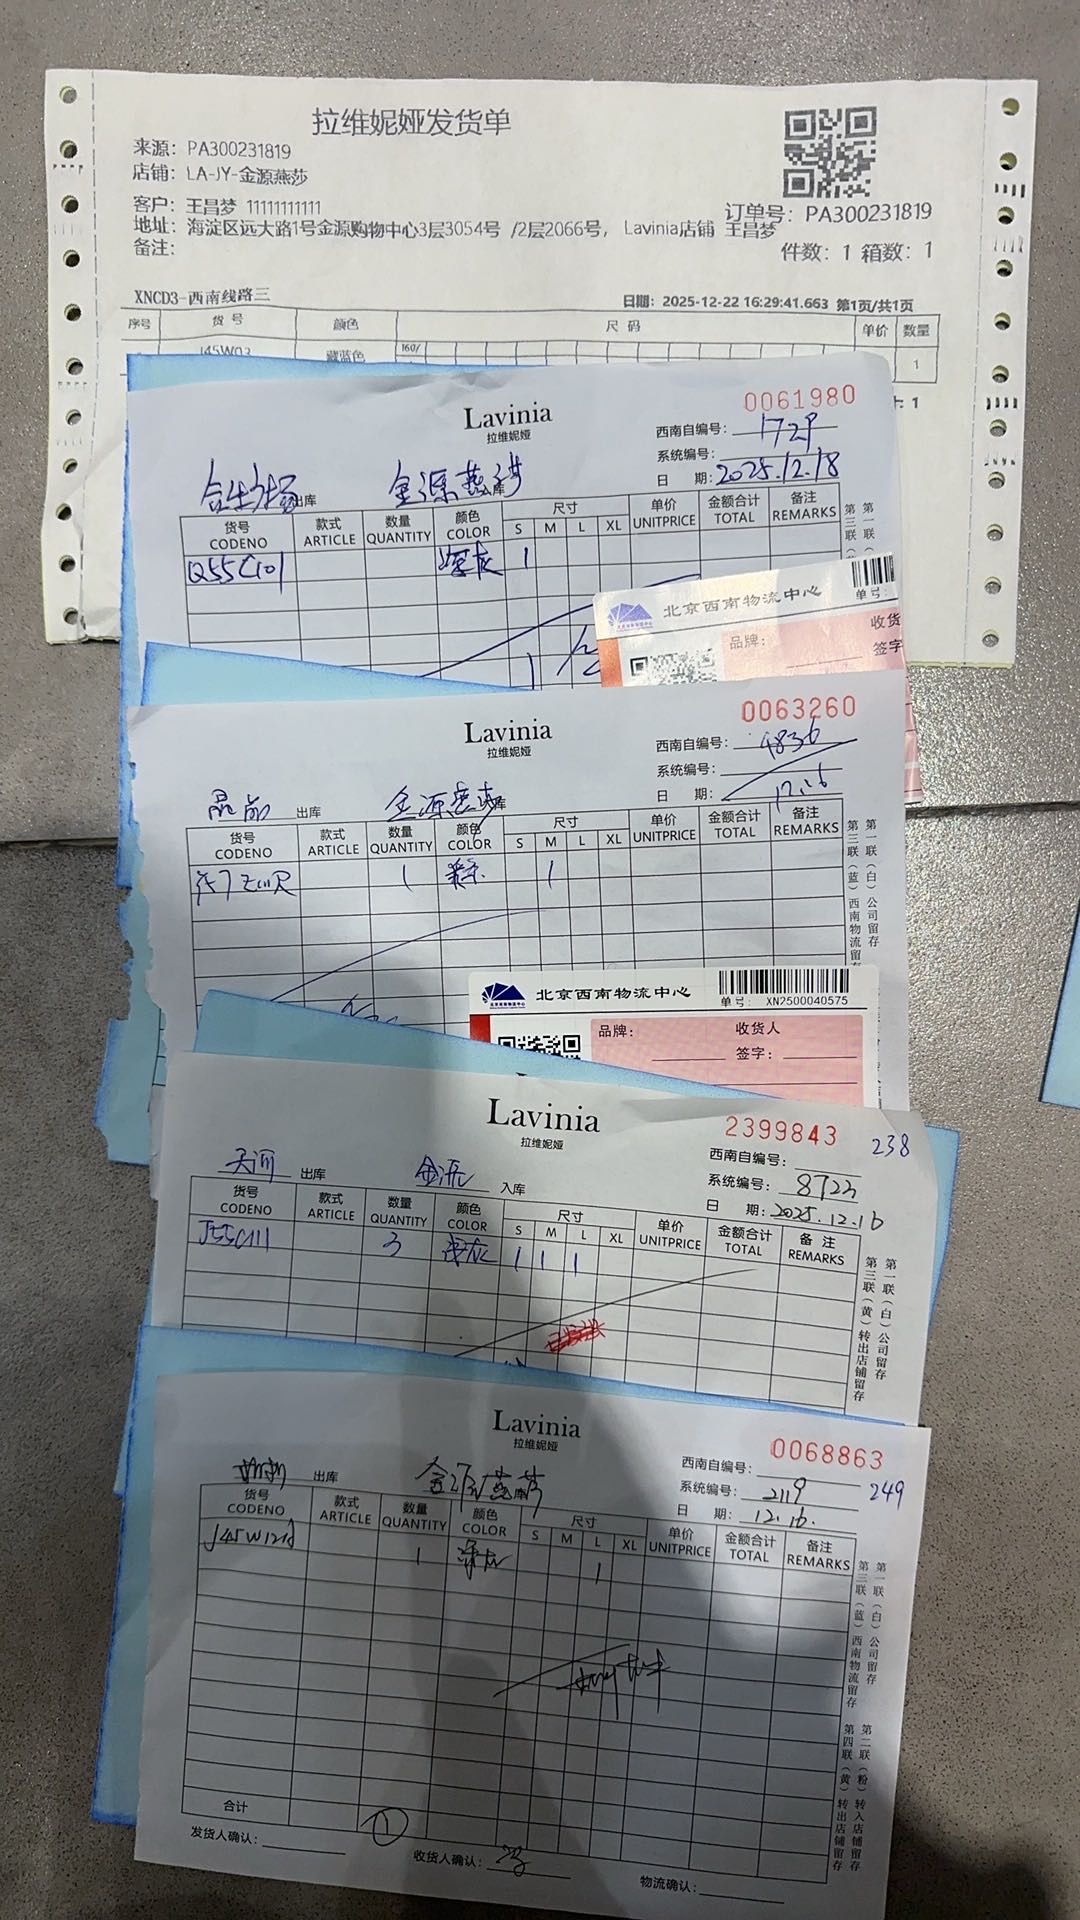 拉维妮娅发货单
来源：PA300231819
店铺：LA-JY-金源燕莎
客户：王昌梦 11111111111
地址：海淀区远大路1号金源购物中心3层3054号 /2层2066号， Lavinia店铺 王昌梦
备注：
订单号：PA300231819
件数：1 箱数：1
XNCD3-西南线路三
日期：2025-12-22 16:29:41.663 第1页/共1页
序号 货 号 颜色 尺 码 单价 数量
J45W03 藏蓝色 160/ 1
1
Lavinia
拉维妮娅
0061980
西南自编号：1729
系统编号：
日 期：2025.12.18
出库 金源燕莎
货号 款式 数量 颜色 尺寸 单价 金额合计 备注
CODENO ARTICLE QUANTITY COLOR S M L XL UNITPRICE TOTAL REMARKS
Q55C101 深灰 1
1
第一联（
第三联（
北京西南物流中心
单号
品牌：
收货
签字
Lavinia
拉维妮娅
0063260
西南自编号：4836
系统编号：
日 期：12.16
出库 金源燕莎
货号 款式 数量 颜色 尺寸 单价 金额合计 备注
CODENO ARTICLE QUANTITY COLOR S M L XL UNITPRICE TOTAL REMARKS
1 1
第一联（白）公司留存
第三联（蓝）西南物流留存
北京西南物流中心
单号： XN2500040575
品牌：
收货人
签字：
Lavinia
拉维妮娅
2399843 238
西南自编号：
系统编号：8723
日 期：2025.12.16
天河 出库 金源 入库
货号 款式 数量 颜色 尺寸 单价 金额合计 备 注
CODENO ARTICLE QUANTITY COLOR S M L XL UNITPRICE TOTAL REMARKS
J55C111 3 深灰 1 1 1
第一联（白）公司留存
第三联（黄）转出店铺留存
Lavinia
拉维妮娅
0068863
西南自编号：
系统编号：2119 249
日 期：12.16.
出库 金源燕莎
货号 款式 数量 颜色 尺寸 单价 金额合计 备注
CODENO ARTICLE QUANTITY COLOR S M L XL UNITPRICE TOTAL REMARKS
1 深灰 1
第一联（白）公司留存
第三联（蓝）西南物流留存
第二联（粉）转入店铺留存
第四联（黄）转出店铺留存
合计 1
发货人确认：
收货人确认：
物流确认：